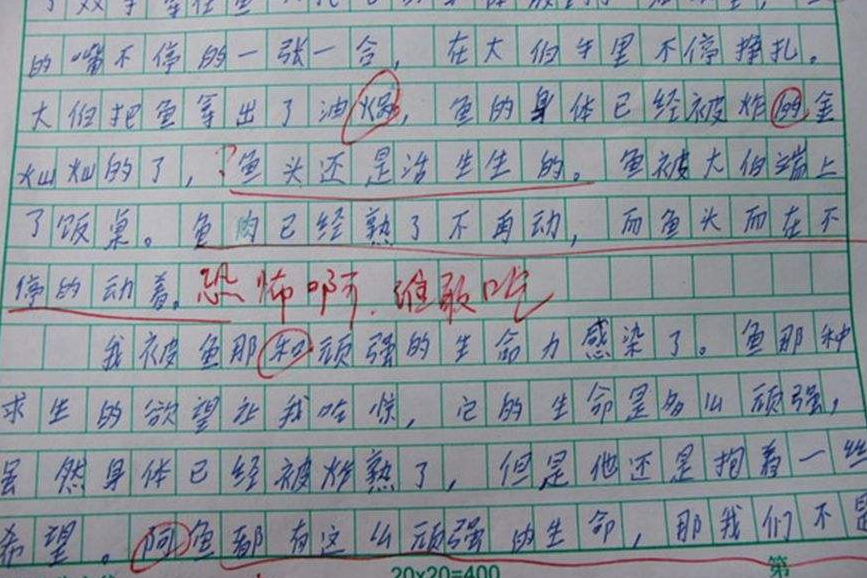 的嘴不停的一张一合，在大伯手里不停挣扎。
大伯把鱼拿出了油锅，鱼的身体已经被炸的金
灿灿的了，?鱼头还是活生生的。鱼被大伯端上
了饭桌。鱼肉已经熟了不再动，而鱼头而在不
停的动着。恐怖啊.谁敢吃
我被鱼那和顽强的生命力感染了。鱼那种
求生的欲望让我吃惊，它的生命是多么顽强，
虽然身体已经被炸熟了，但是他还是抱着一丝
希望。阿鱼都有这么顽强的生命，那我们不
20x20=400 第